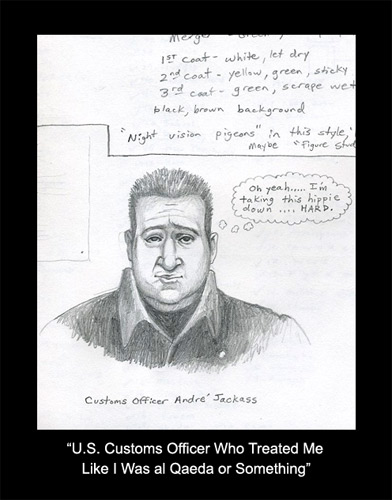 Merger - Green,
1st coat - white, let dry
2nd coat - yellow, green, sticky
3rd coat - green, scrape wet
black, brown background
"Night vision pigeons" in this style,
Maybe "Figure
Oh yeah..... I'm
taking this hippie
down .... HARD.
Customs Officer André Jackass
“U.S. Customs Officer Who Treated Me
Like I Was al Qaeda or Something”